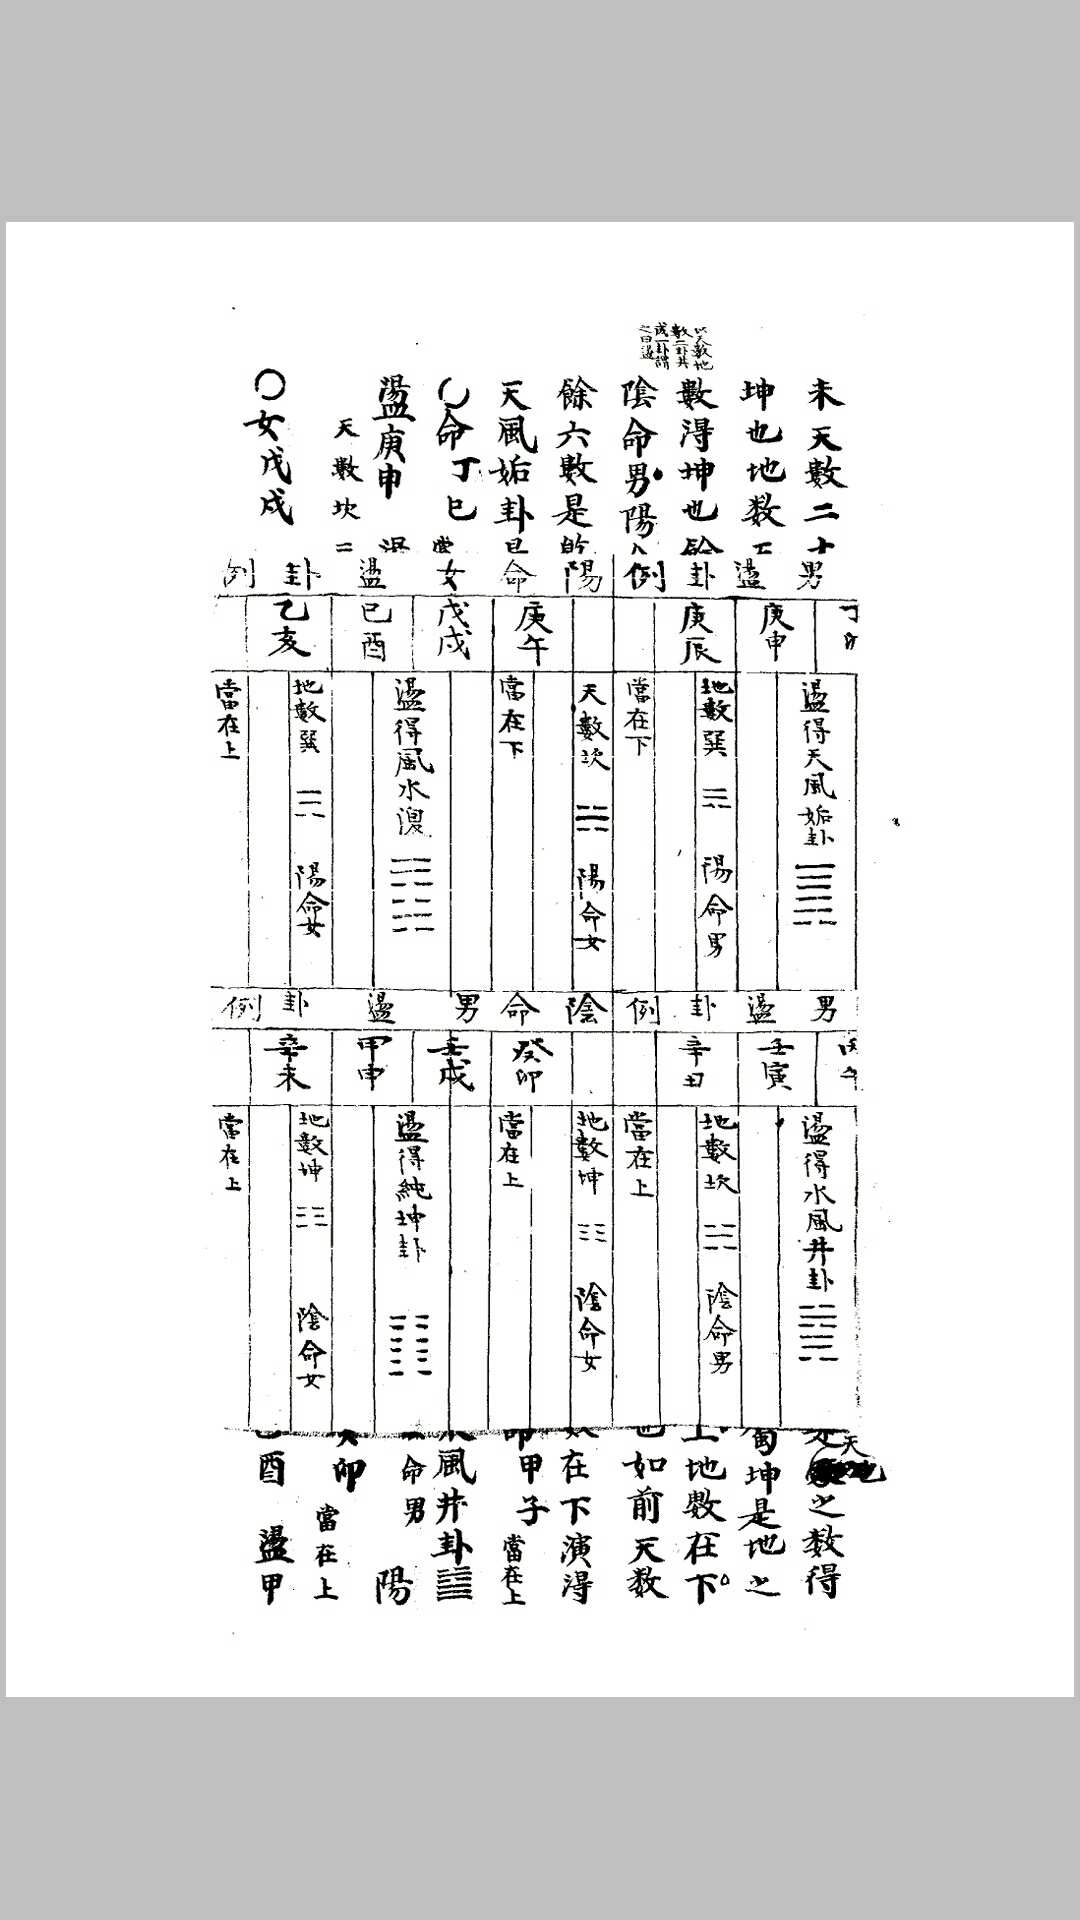 以天数地
数二卦共
成一卦謂
之曰盪
未天數二十
坤也地数五
數得坤也餘
陰命男陽
餘六數是乾
天風姤卦
〇命丁巳
盪庚申
天數坎二
〇女戊戌
男盪卦例
陽命女盪卦例
庚申
庚辰
庚午
戊戌
已酉
乙亥
盪得天風姤卦
地數巽 陽命男
當在下
天數坎 陽命女
當在下
盪得風水渙
地數巽 陽命女
當在上
男盪卦例
陰命男盪卦例
壬寅
辛丑
癸卯
壬戌
甲申
辛未
盪得水風井卦
地數坎 陰命男
當在上
地數坤 陰命女
當在上
盪得純坤卦
地數坤 陰命女
當在上
天
之数得
坤是地之
上地數在下
也如前天数
在下演得
甲子 當在上
風井卦
命男 陽
當在上
卯
酉 盪甲